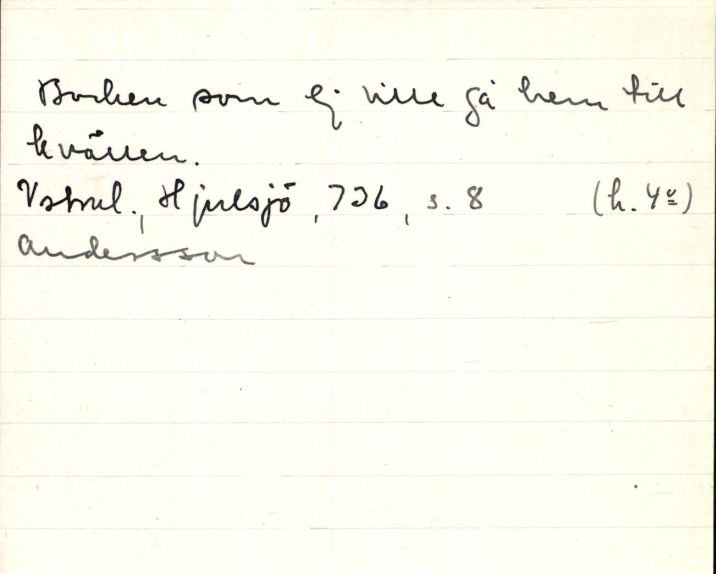 Bocken som ej ville gå hem till
kvällen.
Vstml., Hjulsjö, 726, s. 8 (h. 4º)
Andersson